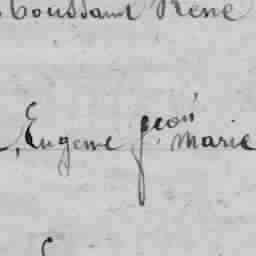 Toussaint René
, Eugene Jean Marie